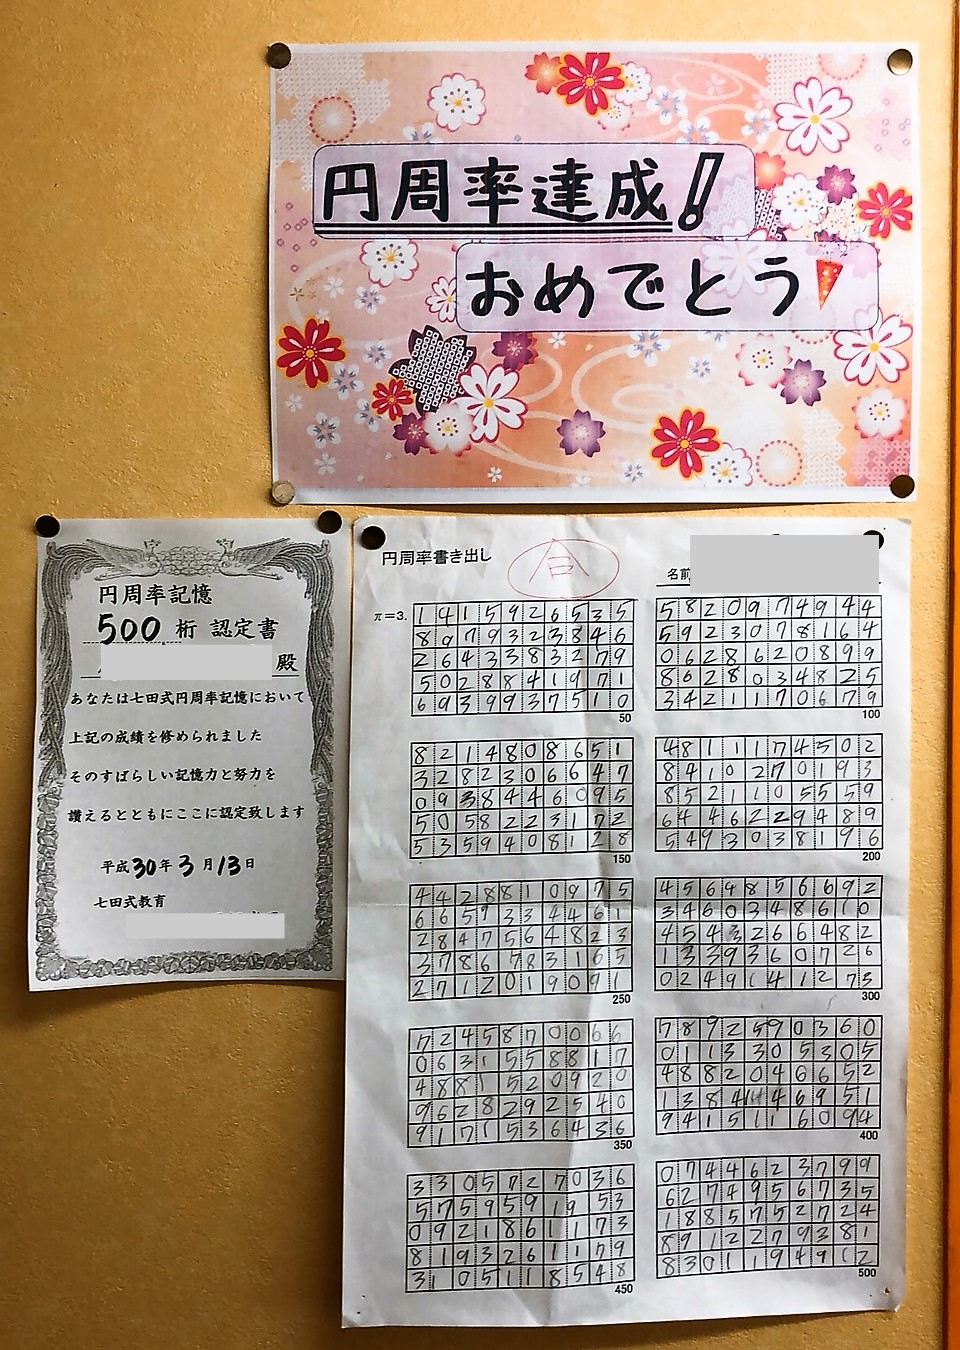 円周率達成!
おめでとう
円周率記憶
500 桁 認定書
殿
あなたは七田式円周率記憶において
上記の成績を修められました
そのすばらしい記憶力と努力を
讃えるとともにここに認定致します
平成30年3月13日
七田式教育
円周率書き出し
合
名前
π=3.
1415926535
8979323846
2643383279
5028841971
6939937510
50
5820974944
5923078164
0628620899
8628034825
3421170679
100
8214808651
3282306647
0938446095
5058223172
5359408128
150
4811174502
8410270193
8521105559
6446229489
5493038196
200
4428810975
6659334461
2847564823
3786783165
2712019091
250
4564856692
3460348610
4543266482
1339360726
0249141273
300
7245870066
0631558817
4881520920
9628292540
9171536436
350
7892590360
0113305305
4882046652
1384146951
9415116094
400
3305727036
5759591953
0921861173
8193261179
3105118548
450
0744623799
6274956735
1885752724
8912279381
8301194912
500